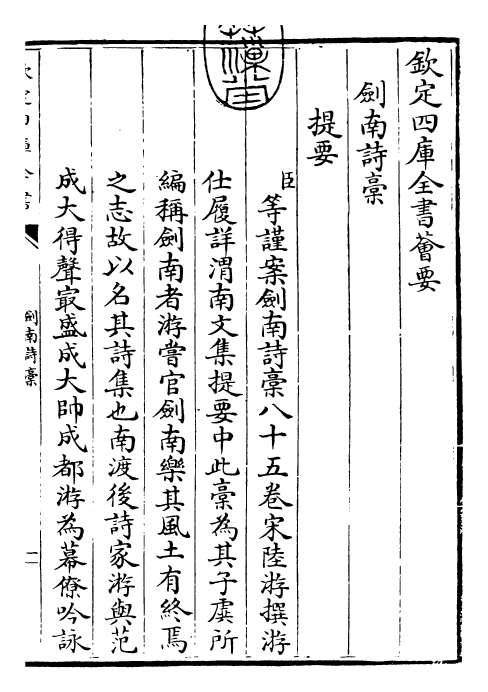 欽定四庫全書薈要
劍南詩稾
提要
臣等謹案劍南詩稾八十五卷宋陸游撰游
仕履詳渭南文集提要中此稾為其子虡所
編稱劍南者游嘗官劍南樂其風土有終焉
之志故以名其詩集也南渡後詩家游與范
成大得聲最盛成大帥成都游為幕僚吟詠
劍南詩稾
一